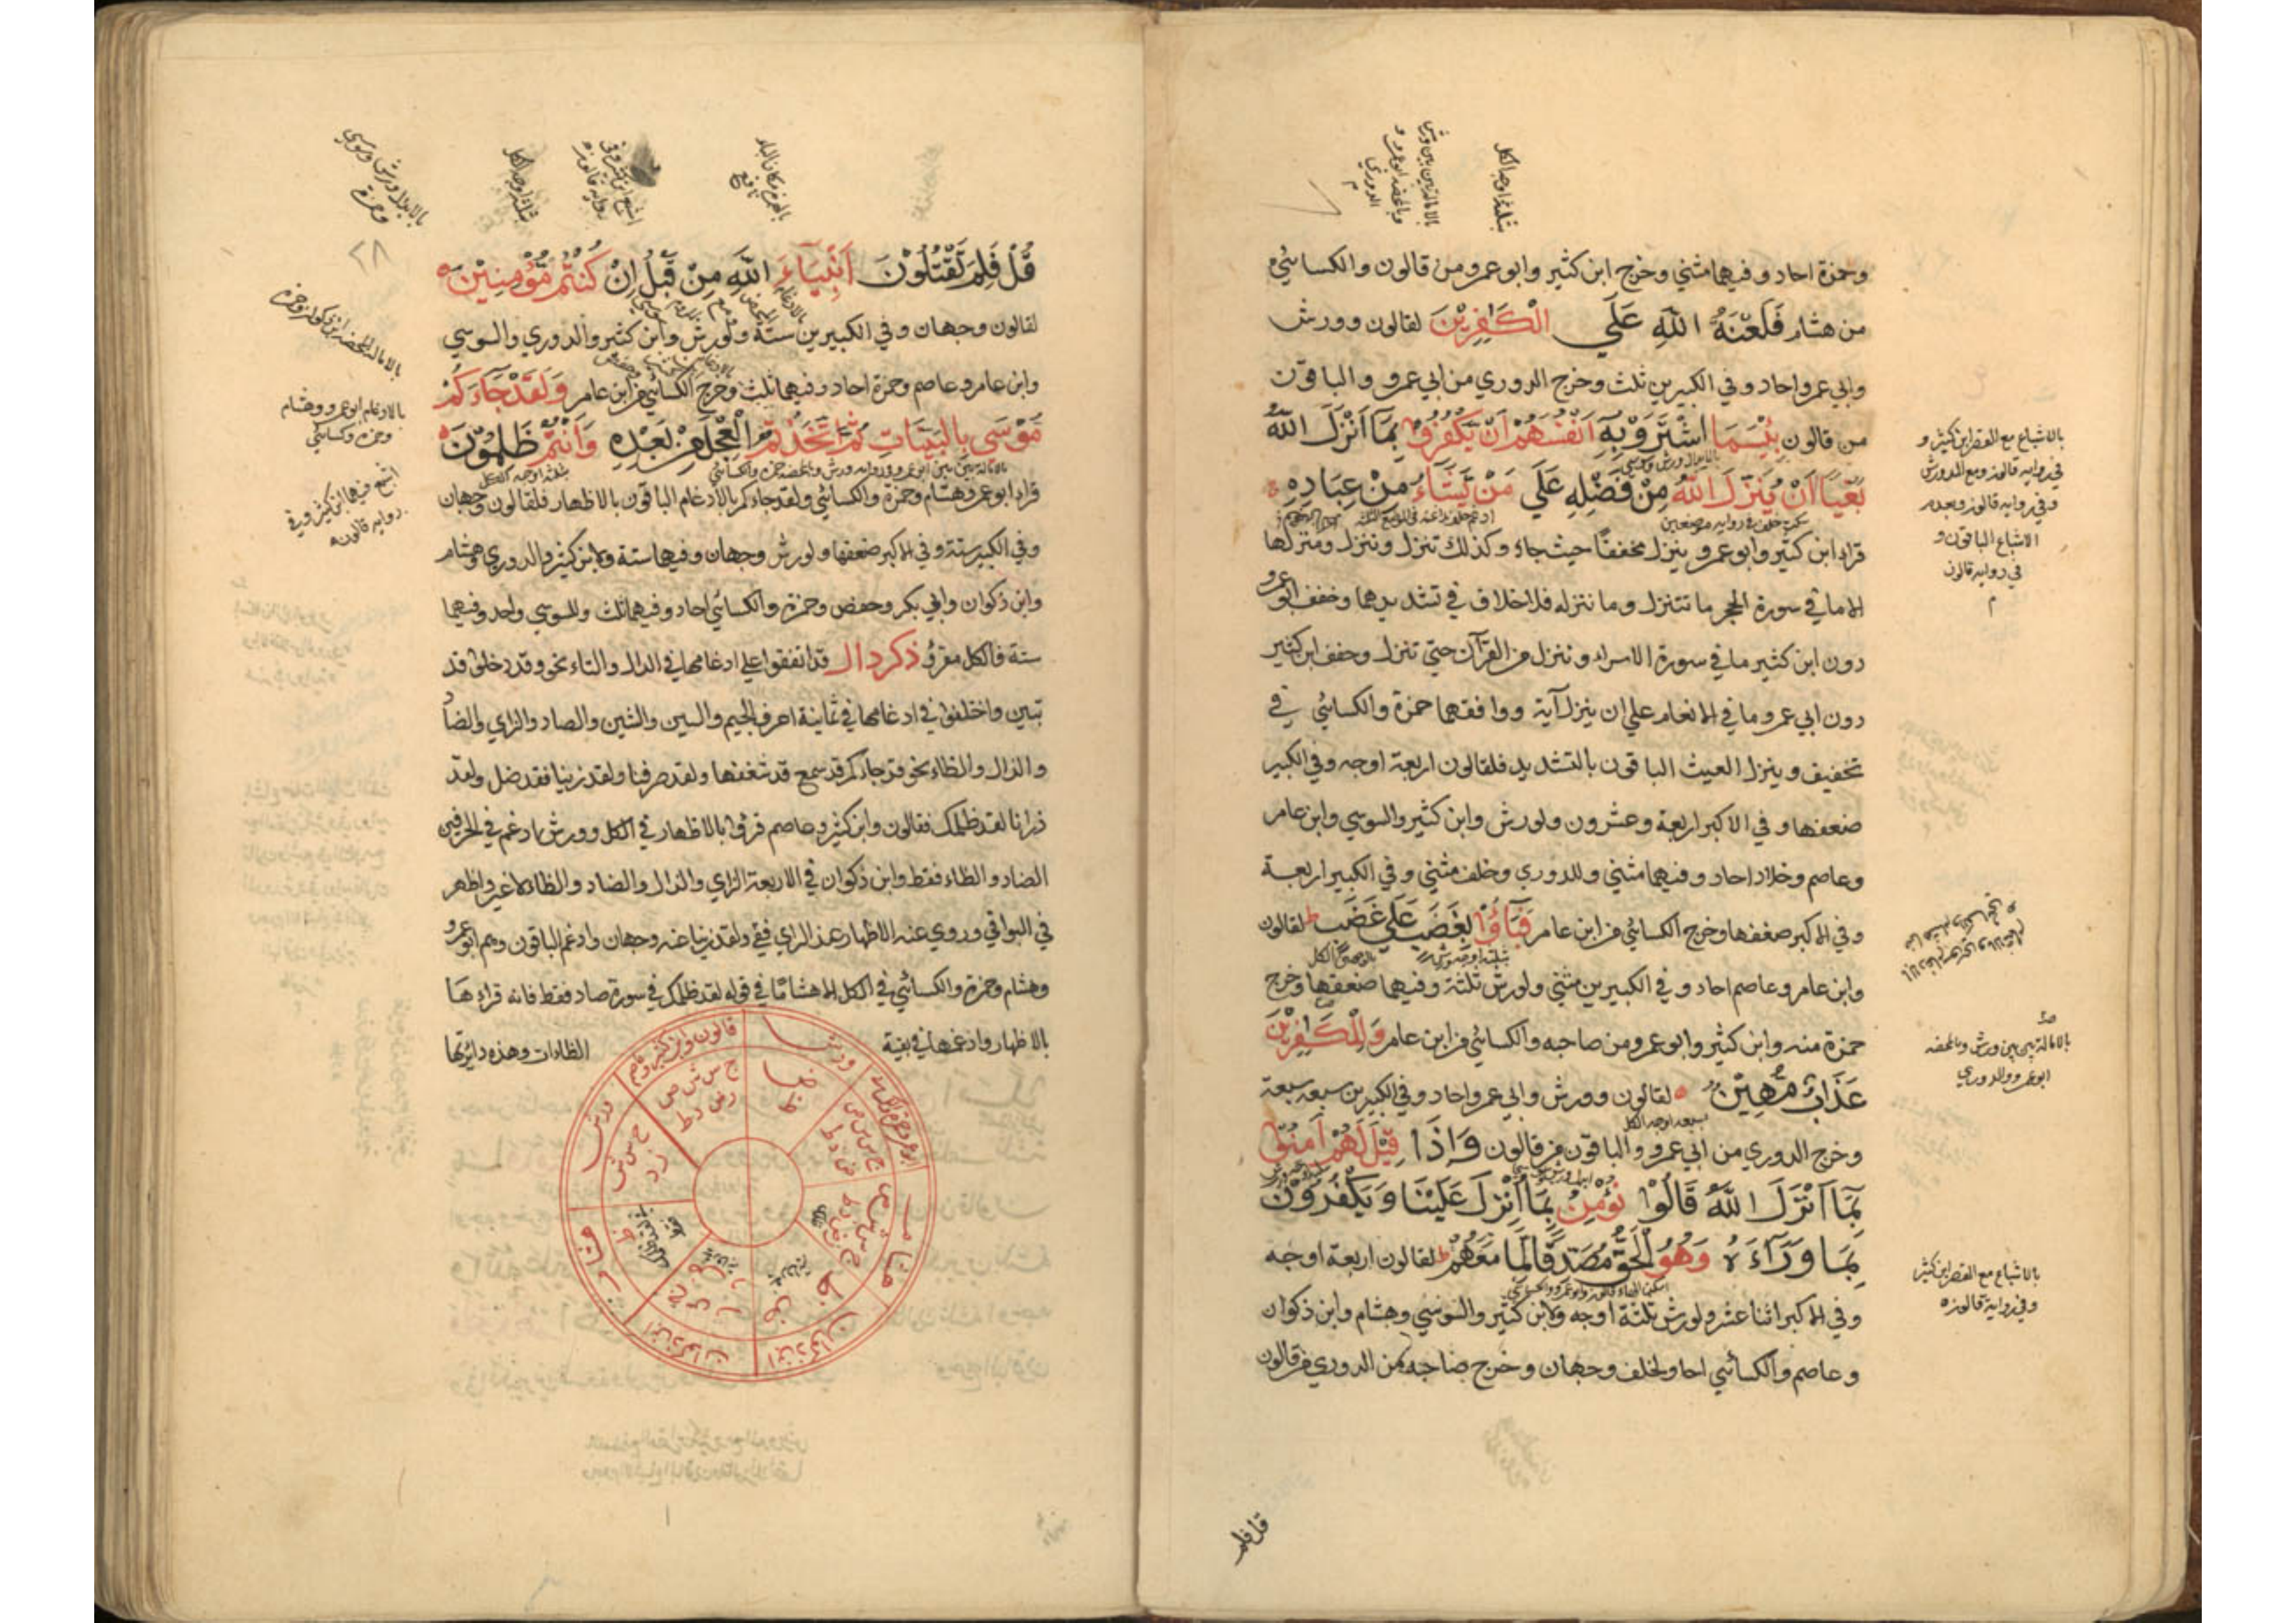 وحمزة احاد وفيهما مثني وخرج ابن كثير وابو عمرو من قالون والكسائي
من هشام فَلَعْنَةُ اللّٰهِ عَلَي الْكَافِرِيْنَ لقالون وورش
وابي عمرو احاد وفي الكبيرين ثلث وخرج الدوري من ابي عمرو والباقون
من قالون بِئْسَمَا اشْتَرَوْا بِهٖٓ اَنْفُسَهُمْ اَنْ يَّكْفُرُوْا بِمَا اَنْزَلَ اللّٰهُ
بَغْيًا اَنْ يُّنَزِّلَ اللّٰهُ مِنْ فَضْلِهٖ عَلَي مَنْ يَّشَآءُ مِنْ عِبَادِهٖ
قراء ابن كثير وابو عمرو ينزل مخففا حيث جاء وكذلك تنزل وننزل ومنزلها
الا ما في سورة الحجر ما تتنزل وما ننزله فلا خلاف في تشديدهما وخفف ابو عمرو
دون ابن كثير ما في سورة الاسراء وننزل من القرآن حتي تنزل وخفف ابن كثير
دون ابي عمرو ما في الانعام علي ان ينزل آية ووافقهما حمزة والكسائي في
تخفيف وينزل الغيث الباقون بالتشديد فلقالون اربعة اوجه وفي الكبير
ضعفها وفي الاكبر اربعة وعشرون ولورش وابن كثير والسوسي وابن عامر
وعاصم وخلاد احاد وفيهما مثني وللدوري وخلف مثني وفي الكبير اربعة
وفي الاكبر ضعفها وخرج الكسائي من ابن عامر فَبَآؤُا بِغَضَبٍ عَلَي غَضَبٍ لقالون
وابن عامر وعاصم احاد وفي الكبيرين مثني ولورش ثلثة وفيهما ضعفها وخرج
حمزة منه وابن كثير وابو عمرو من صاحبه والكسائي من ابن عامر وَلِلْكَافِرِيْنَ
عَذَابٌ مُّهِيْنٌ لقالون وورش وابي عمرو احاد وفي الكبيرين سبعة سبعة
وخرج الدوري من ابي عمرو والباقون من قالون وَاِذَا قِيْلَ لَهُمْ اٰمِنُوْا
بِمَآ اَنْزَلَ اللّٰهُ قَالُوْا نُؤْمِنُ بِمَآ اُنْزِلَ عَلَيْنَا وَيَكْفُرُوْنَ
بِمَا وَرَآءَهٗ وَهُوَ الْحَقُّ مُصَدِّقًا لِّمَا مَعَهُمْ لقالون اربعة اوجه
وفي الاكبر اثنا عشر ولورش ثلثة اوجه ولابن كثير والسوسي وهشام وابن ذكوان
وعاصم والكسائي احاد ولخلف وجهان وخرج صاحبه من الدوري من قالون
قل فلم
بثلثة اوجه الكل
بالاشباع مع القصر ابن كثير و
في رواية قالون ومع المد ورش
وفي رواية قالون وبعدم
الاشباع الباقون و
في رواية قالون
بالامالة بين بين ورش والمحضة
ابو عمرو والدوري
بالاشباع مع القصر ابن كثير
وفي رواية قالون
قُلْ فَلِمَ تَقْتُلُوْنَ اَنْبِيَآءَ اللّٰهِ مِنْ قَبْلُ اِنْ كُنْتُمْ مُّؤْمِنِيْنَ
لقالون وجهان وفي الكبيرين ستة ولورش وابن كثير والدوري والسوسي
وابن عامر وعاصم وحمزة احاد وفيهما ثلث وخرج الكسائي من ابن عامر وَلَقَدْ جَآءَكُمْ
مُوْسَي بِالْبَيِّنَاتِ ثُمَّ اتَّخَذْتُمُ الْعِجْلَ مِنْ بَعْدِهٖ وَاَنْتُمْ ظٰلِمُوْنَ
قراء ابو عمرو وهشام وحمزة والكسائي ولقد جاءكم بالادغام الباقون بالاظهار فلقالون وجهان
وفي الكبير ستة وفي الاكبر ضعفها ولورش وجهان وفيهما ستة ولابن كثير والدوري وهشام
وابن ذكوان وابي بكر وحفص وحمزة والكسائي احاد وفيهما ثلث وللسوسي واحد وفيهما
ستة فالكل مقرؤ ذكر دال قد اتفقوا علي ادغامها في الدال والتاء نحو وقد دخلوا قد
تبين واختلفوا في ادغامها في ثمانية احرف الجيم والسين والشين والصاد والزاي والضاد
والذال والظاء نحو قد جاءكم قد سمع قد شغفها ولقد صرفنا ولقد زينا فقد ضل ولقد
ذرانا لقد ظلمك فقالون وابن كثير وعاصم قرؤا بالاظهار في الكل وورش ادغم في الحرفين
الضاد والظاء فقط وابن ذكوان في الاربعة الزاي والذال والضاد والظاء لا غير واظهر
في البواقي وروي عنه الاظهار عند الزاي ففي ولقد زينا عنه وجهان وادغم الباقون وهم ابو عمرو
وهشام وحمزة والكسائي في الكل الا هشاما في قوله لقد ظلمك في سورة صاد فقط فانه قراءها
بالاظهار وادغمها في بقية الظاءات وهذه دائرتها
بالابدال ورش وسوسي
وحمزة
٢٨
بالادغام ابو عمرو وهشام
وحمزة وكسائي
اشبع فيهما ابن كثير وفي
رواية قالون
بالهمزة مكان الياء
نافع
بثلثة اوجه الكل
قالون وابن كثير وعاصم
ج س ش ص
ورش
ض ظ
ج س ش
ز ذ
هشام
ابن ذكوان
ابن ذكوان